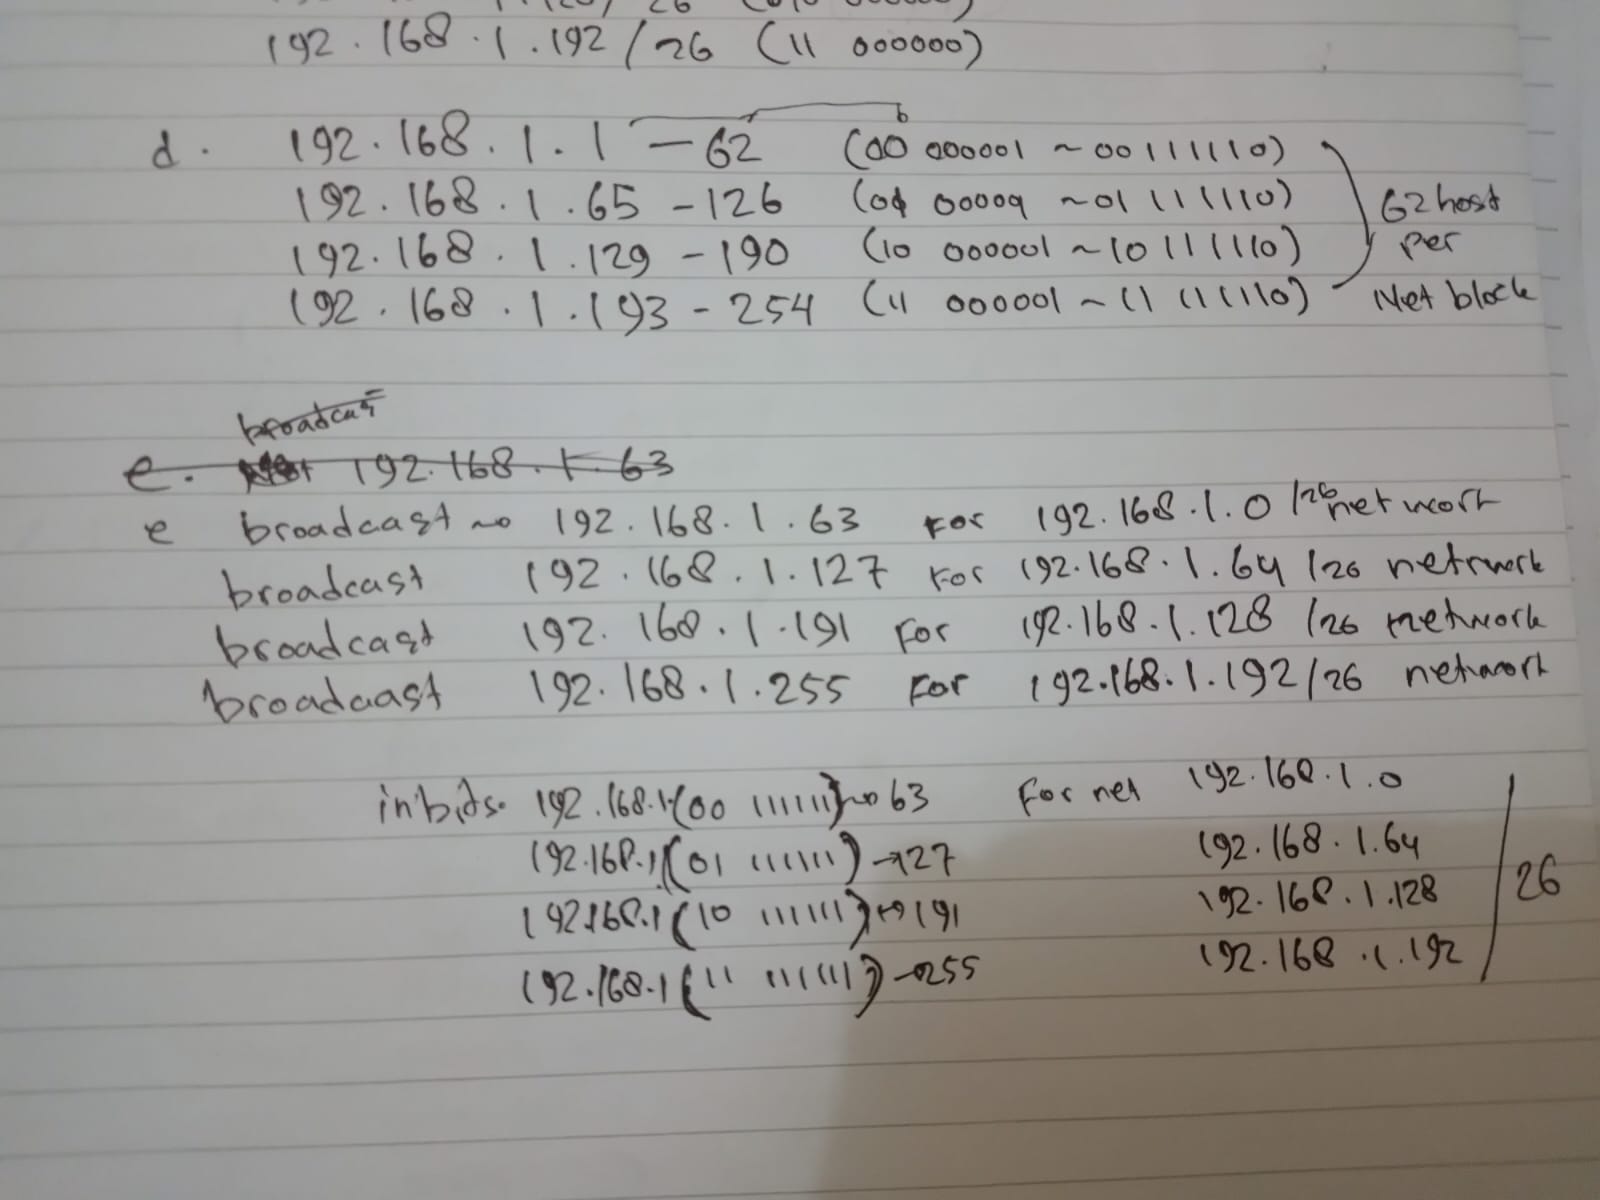 192.168.1.192/26 (11 000000)
d. 192.168.1.1 - 62 (00 000001 ~ 00 111110)
192.168.1.65 - 126 (01 00001 ~ 01 111110)
192.168.1.129 - 190 (10 000001 ~ 10 111110)
192.168.1.193 - 254 (11 000001 ~ 11 111110)
62 host
per
Net block
broadcas
e. 192.168.1.63
e broadcast → 192.168.1.63 For 192.168.1.0 /26 network
broadcast 192.168.1.127 For 192.168.1.64 /26 netrwork
broadcast 192.168.1.191 For 192.168.1.128 /26 network
broadcast 192.168.1.255 For 192.168.1.192/26 network
in bits. 192.168.1.(00 111111) → 63 For net 192.168.1.0
192.168.1(01 111111) → 127 192.168.1.64
192.168.1(10 111111) → 191 192.168.1.128
192.168.1(11 111111) → 255 192.168.1.192
/26